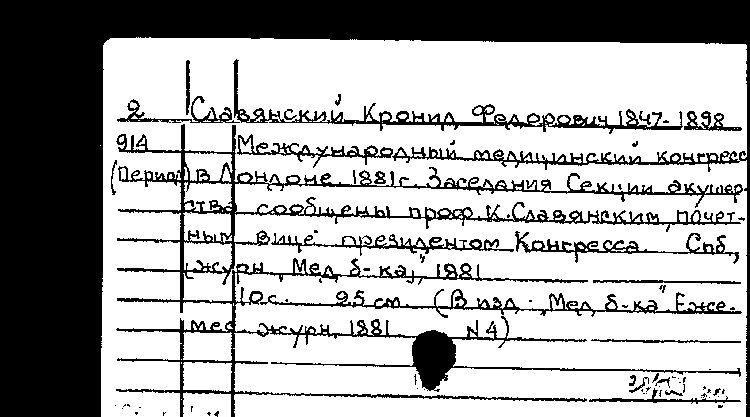 2 Славянский, Кронид Федорович, 1847-1898
914 Международный медицинский конгресс
(Период) в Лондоне 1881 г. Заседания Секции акушер-
ства сообщены проф. К. Славянским, почет-
ным вице президентом Конгресса. Спб,
журн „Мед б-ка", 1881
10 с. 25 см. (В изд. „Мед б-ка" Еже-
мес. журн, 1881 N 4)